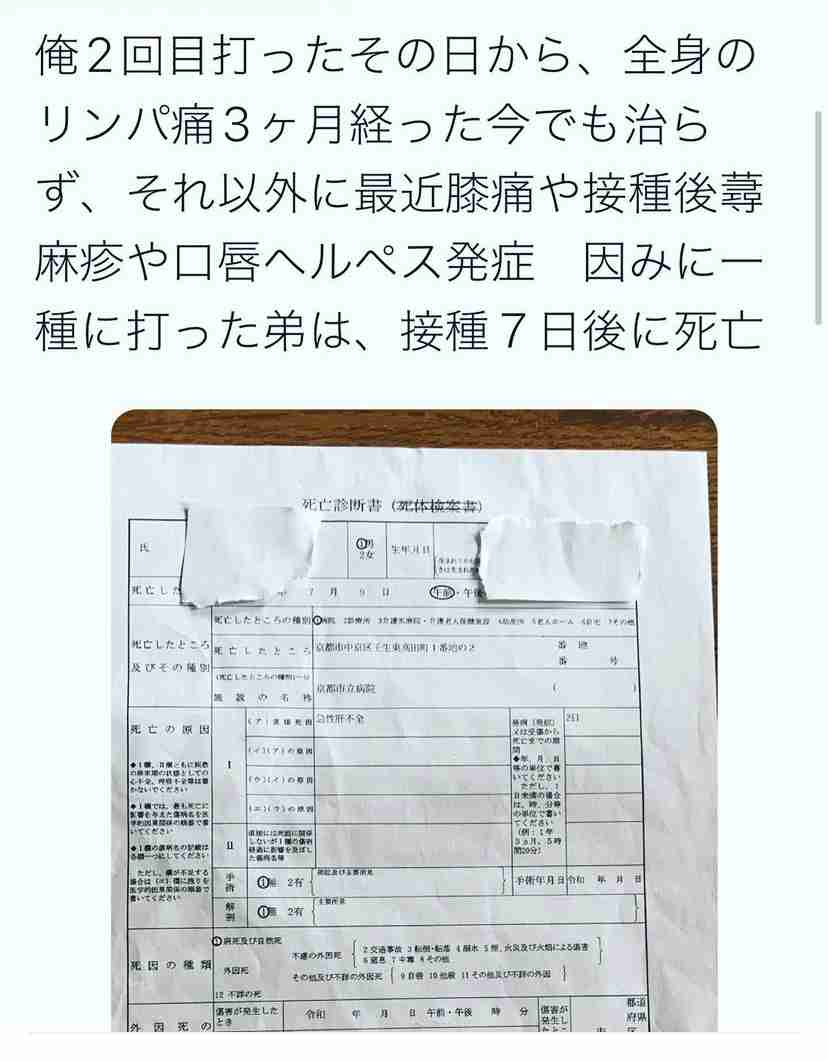 俺2回目打ったその日から、全身の
リンパ痛3ヶ月経った今でも治ら
ず、それ以外に最近膝痛や接種後蕁
麻疹や口唇ヘルペス発症　因みに一
種に打った弟は、接種7日後に死亡
死亡診断書（死体検案書）
氏
1男
2女
生年月日
死亡した
年 7 月 9 日
午前・午後
死亡したところ
及びその種別
死亡したところの種別
1病院 2診療所 3介護医療院・介護老人保健施設 4助産所 5老人ホーム 6自宅 7その他
死亡したところ
京都市中京区壬生東高田町1番地の2
番地
番 号
（死亡したところの種別1～
施設の名称
京都市立病院
（ ）
死亡の原因
◆Ⅰ欄、Ⅱ欄ともに疾患
の終末期の状態としての
心不全、呼吸不全等は書
かないでください
◆Ⅰ欄では、最も死亡に
影響を与えた傷病名を医
学的因果関係の順番で書
いてください
◆Ⅰ欄の傷病名の記載は
各欄一つにしてください
ただし、欄が不足する
場合は（エ）欄に残りを
医学的因果関係の順番で
書いてください
Ⅰ
（ア）直接死因
急性肝不全
（イ）（ア）の原因
（ウ）（イ）の原因
（エ）（ウ）の原因
Ⅱ
直接には死因に関係
しないがⅠ欄の傷病
経過に影響を及ぼし
た傷病名等
発病（発症）
又は受傷から
死亡までの期
間
◆年、月、日
等の単位で書
いてください
ただし、1
日未満の場合
は、時、分等
の単位で書い
てください
（例：1年
3ヵ月、5時
間20分）
2日
手術
1無 2有
部位及び主要所見
手術年月日
令和 年 月 日
解剖
1無 2有
主要所見
死因の種類
1病死及び自然死
外因死
不慮の外因死
2交通事故 3転倒・転落 4溺水 5煙、火災及び火焔による傷害
6窒息 7中毒 8その他
その他及び不詳の外因死
9自殺 10他殺 11その他及び不詳の外因
12 不詳の死
外因死の
傷害が発生した
とき
令和 年 月 日 午前・午後 時 分
傷害が
発生し
たとこ
都道
府県
市 区